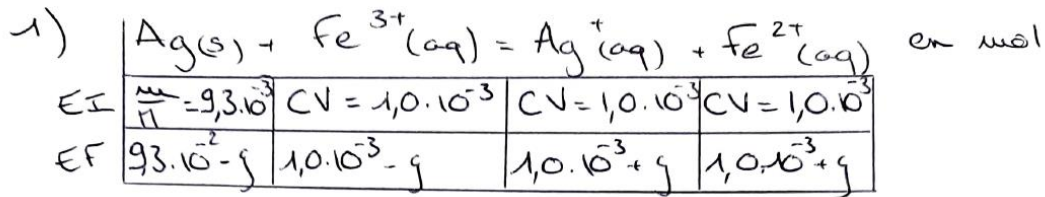 1) Ag(s) + Fe³⁺(aq) = Ag⁺(aq) + Fe²⁺(aq) en mol
EI m/M = 9,3.10⁻³ CV = 1,0.10⁻³ CV = 1,0.10⁻³ CV = 1,0.10⁻³
EF 93.10⁻² - ξ 1,0.10⁻³ - ξ 1,0.10⁻³ + ξ 1,0.10⁻³ + ξ